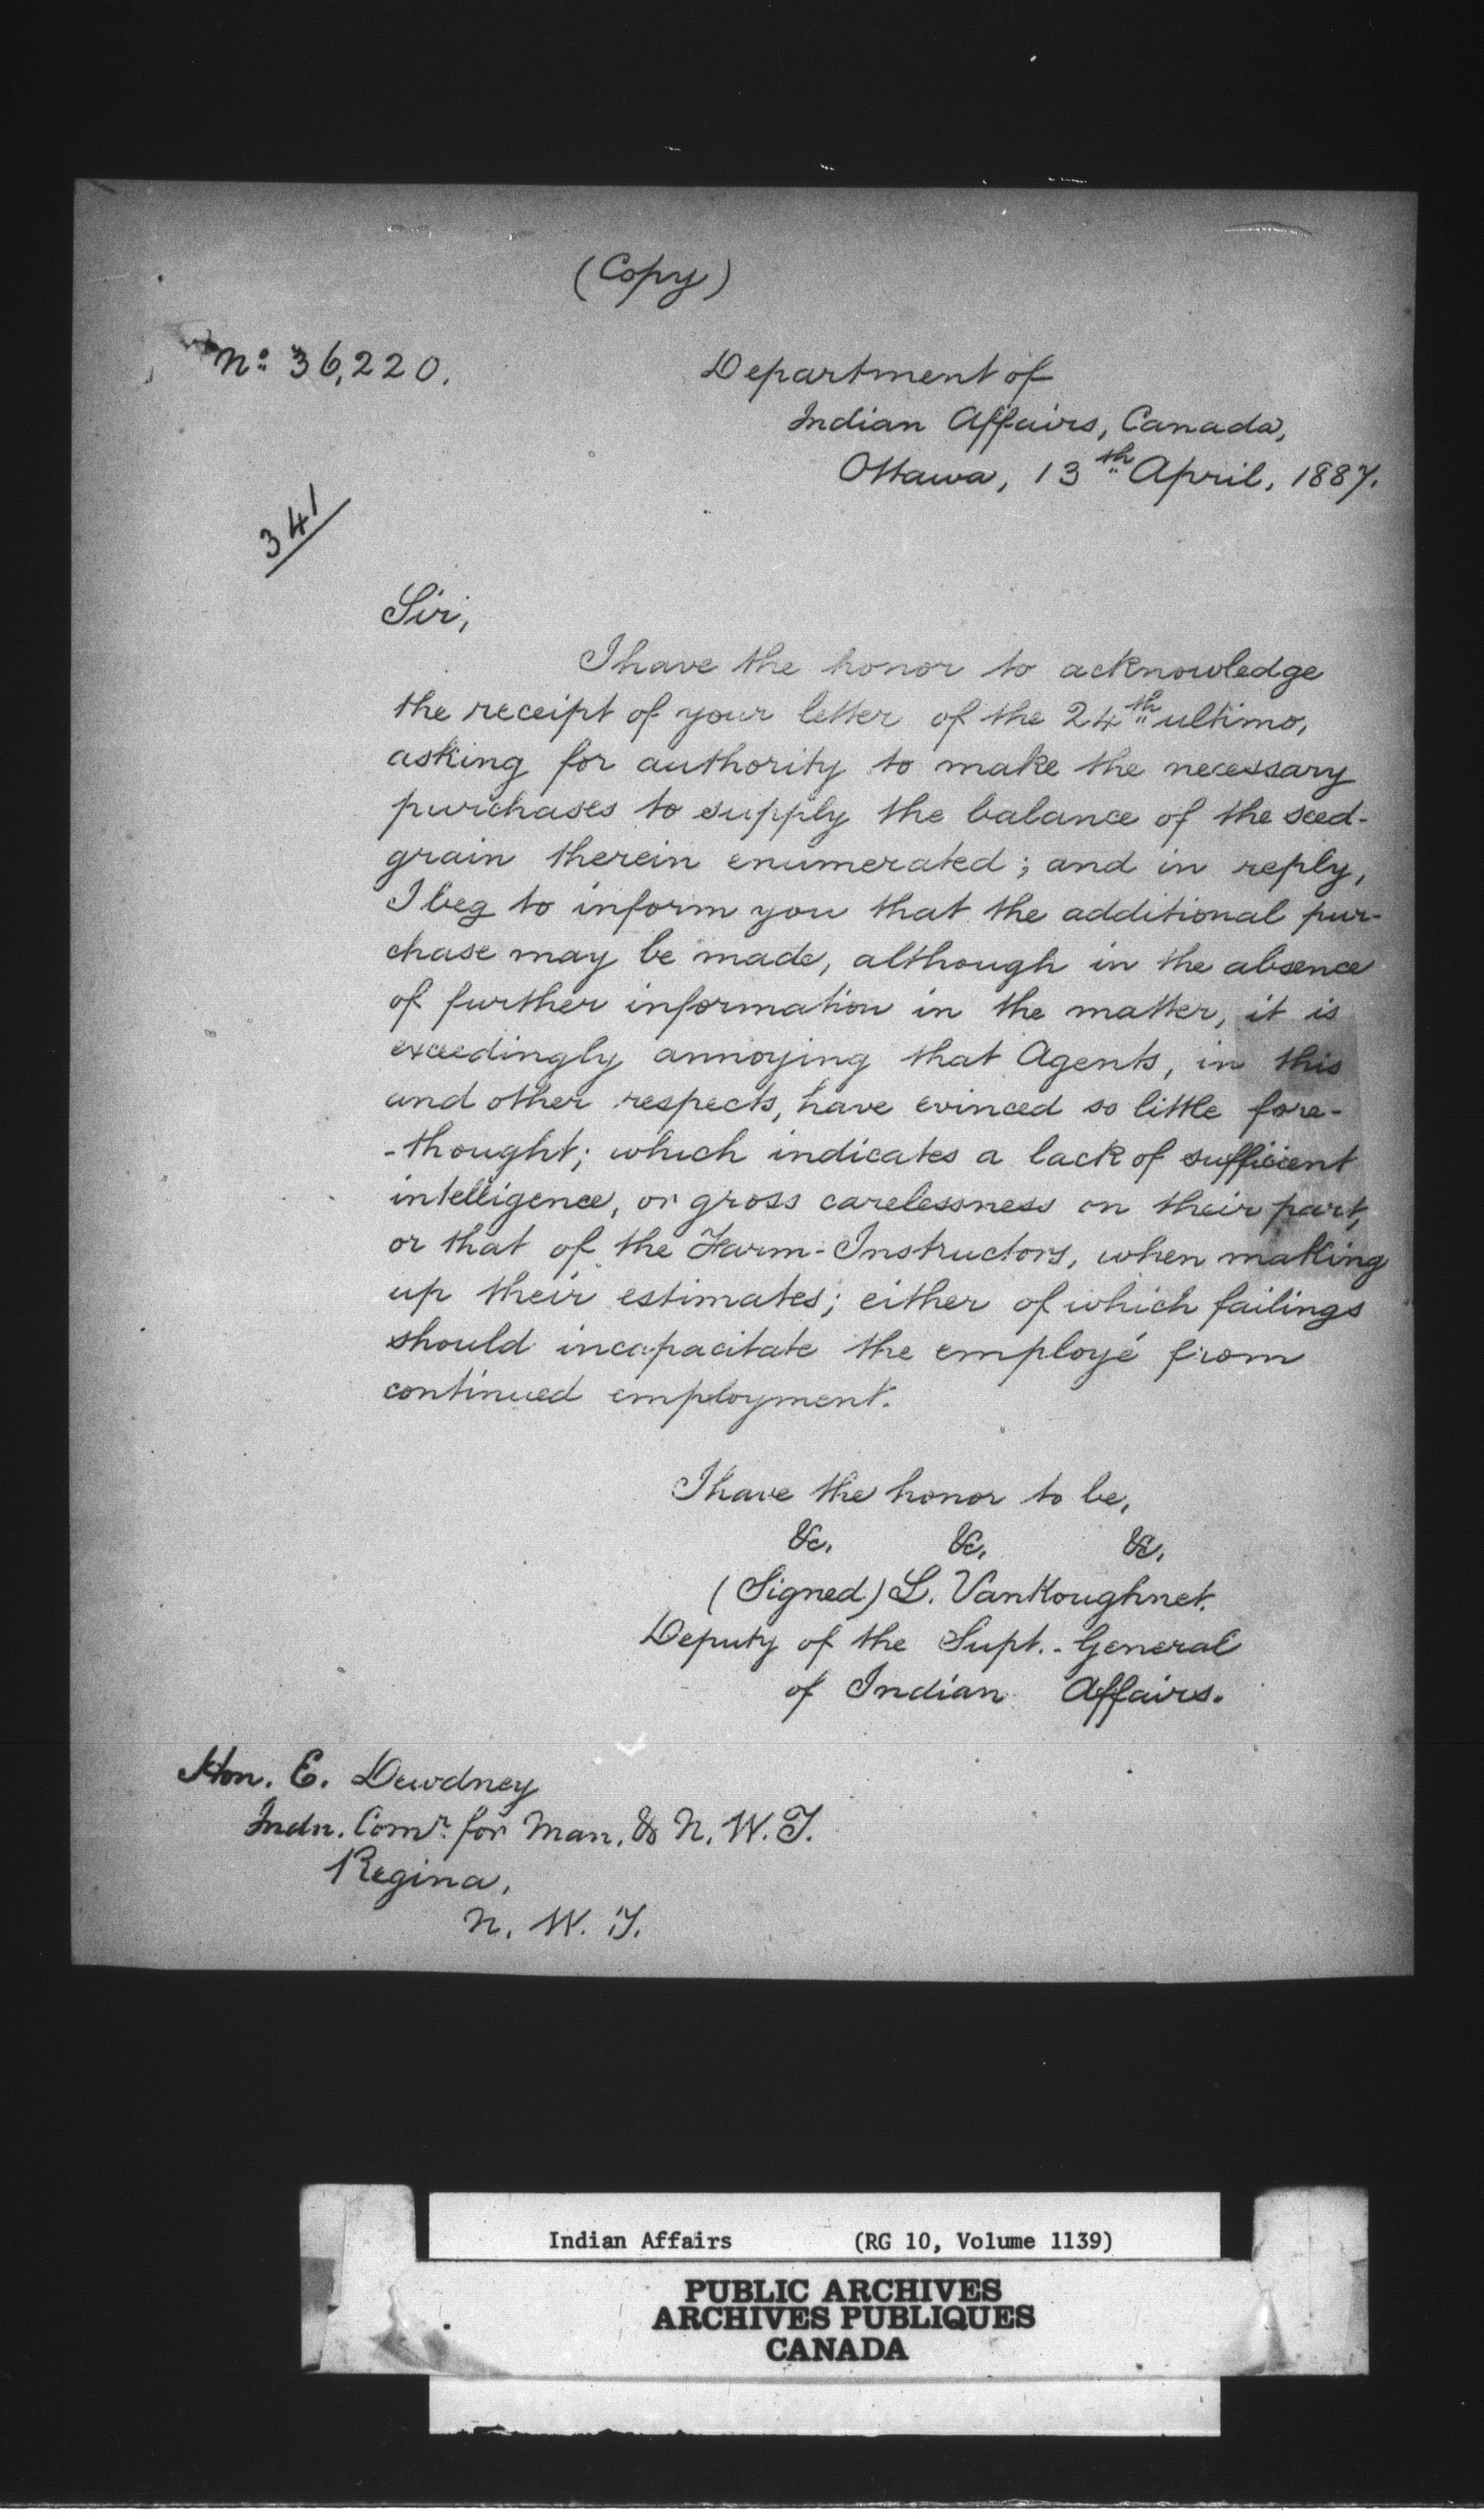 (Copy)
No. 36,220.
Department of
Indian Affairs, Canada,
Ottawa, 13th April, 1887.
341
Sir,
I have the honor to acknowledge
the receipt of your letter of the 24th ultimo,
asking for authority to make the necessary
purchases to supply the balance of the seed-
grain therein enumerated; and in reply,
I beg to inform you that the additional pur-
chase may be made, although in the absence
of further information in the matter, it is
exceedingly annoying that Agents, in this
and other respects, have evinced so little fore-
-thought; which indicates a lack of sufficient
intelligence, or gross carelessness on their part,
or that of the Farm-Instructors, when making
up their estimates; either of which failings
should incapacitate the employé from
continued employment.
I have the honor to be,
&c. &c. &c.
(Signed) L. VanKoughnet.
Deputy of the Supt.-General
of Indian Affairs.
Hon. E. Dewdney
Indn. Comr. for Man. & N. W. T.
Regina,
N. W. T.
Indian Affairs (RG 10, Volume 1139)
PUBLIC ARCHIVES
ARCHIVES PUBLIQUES
CANADA